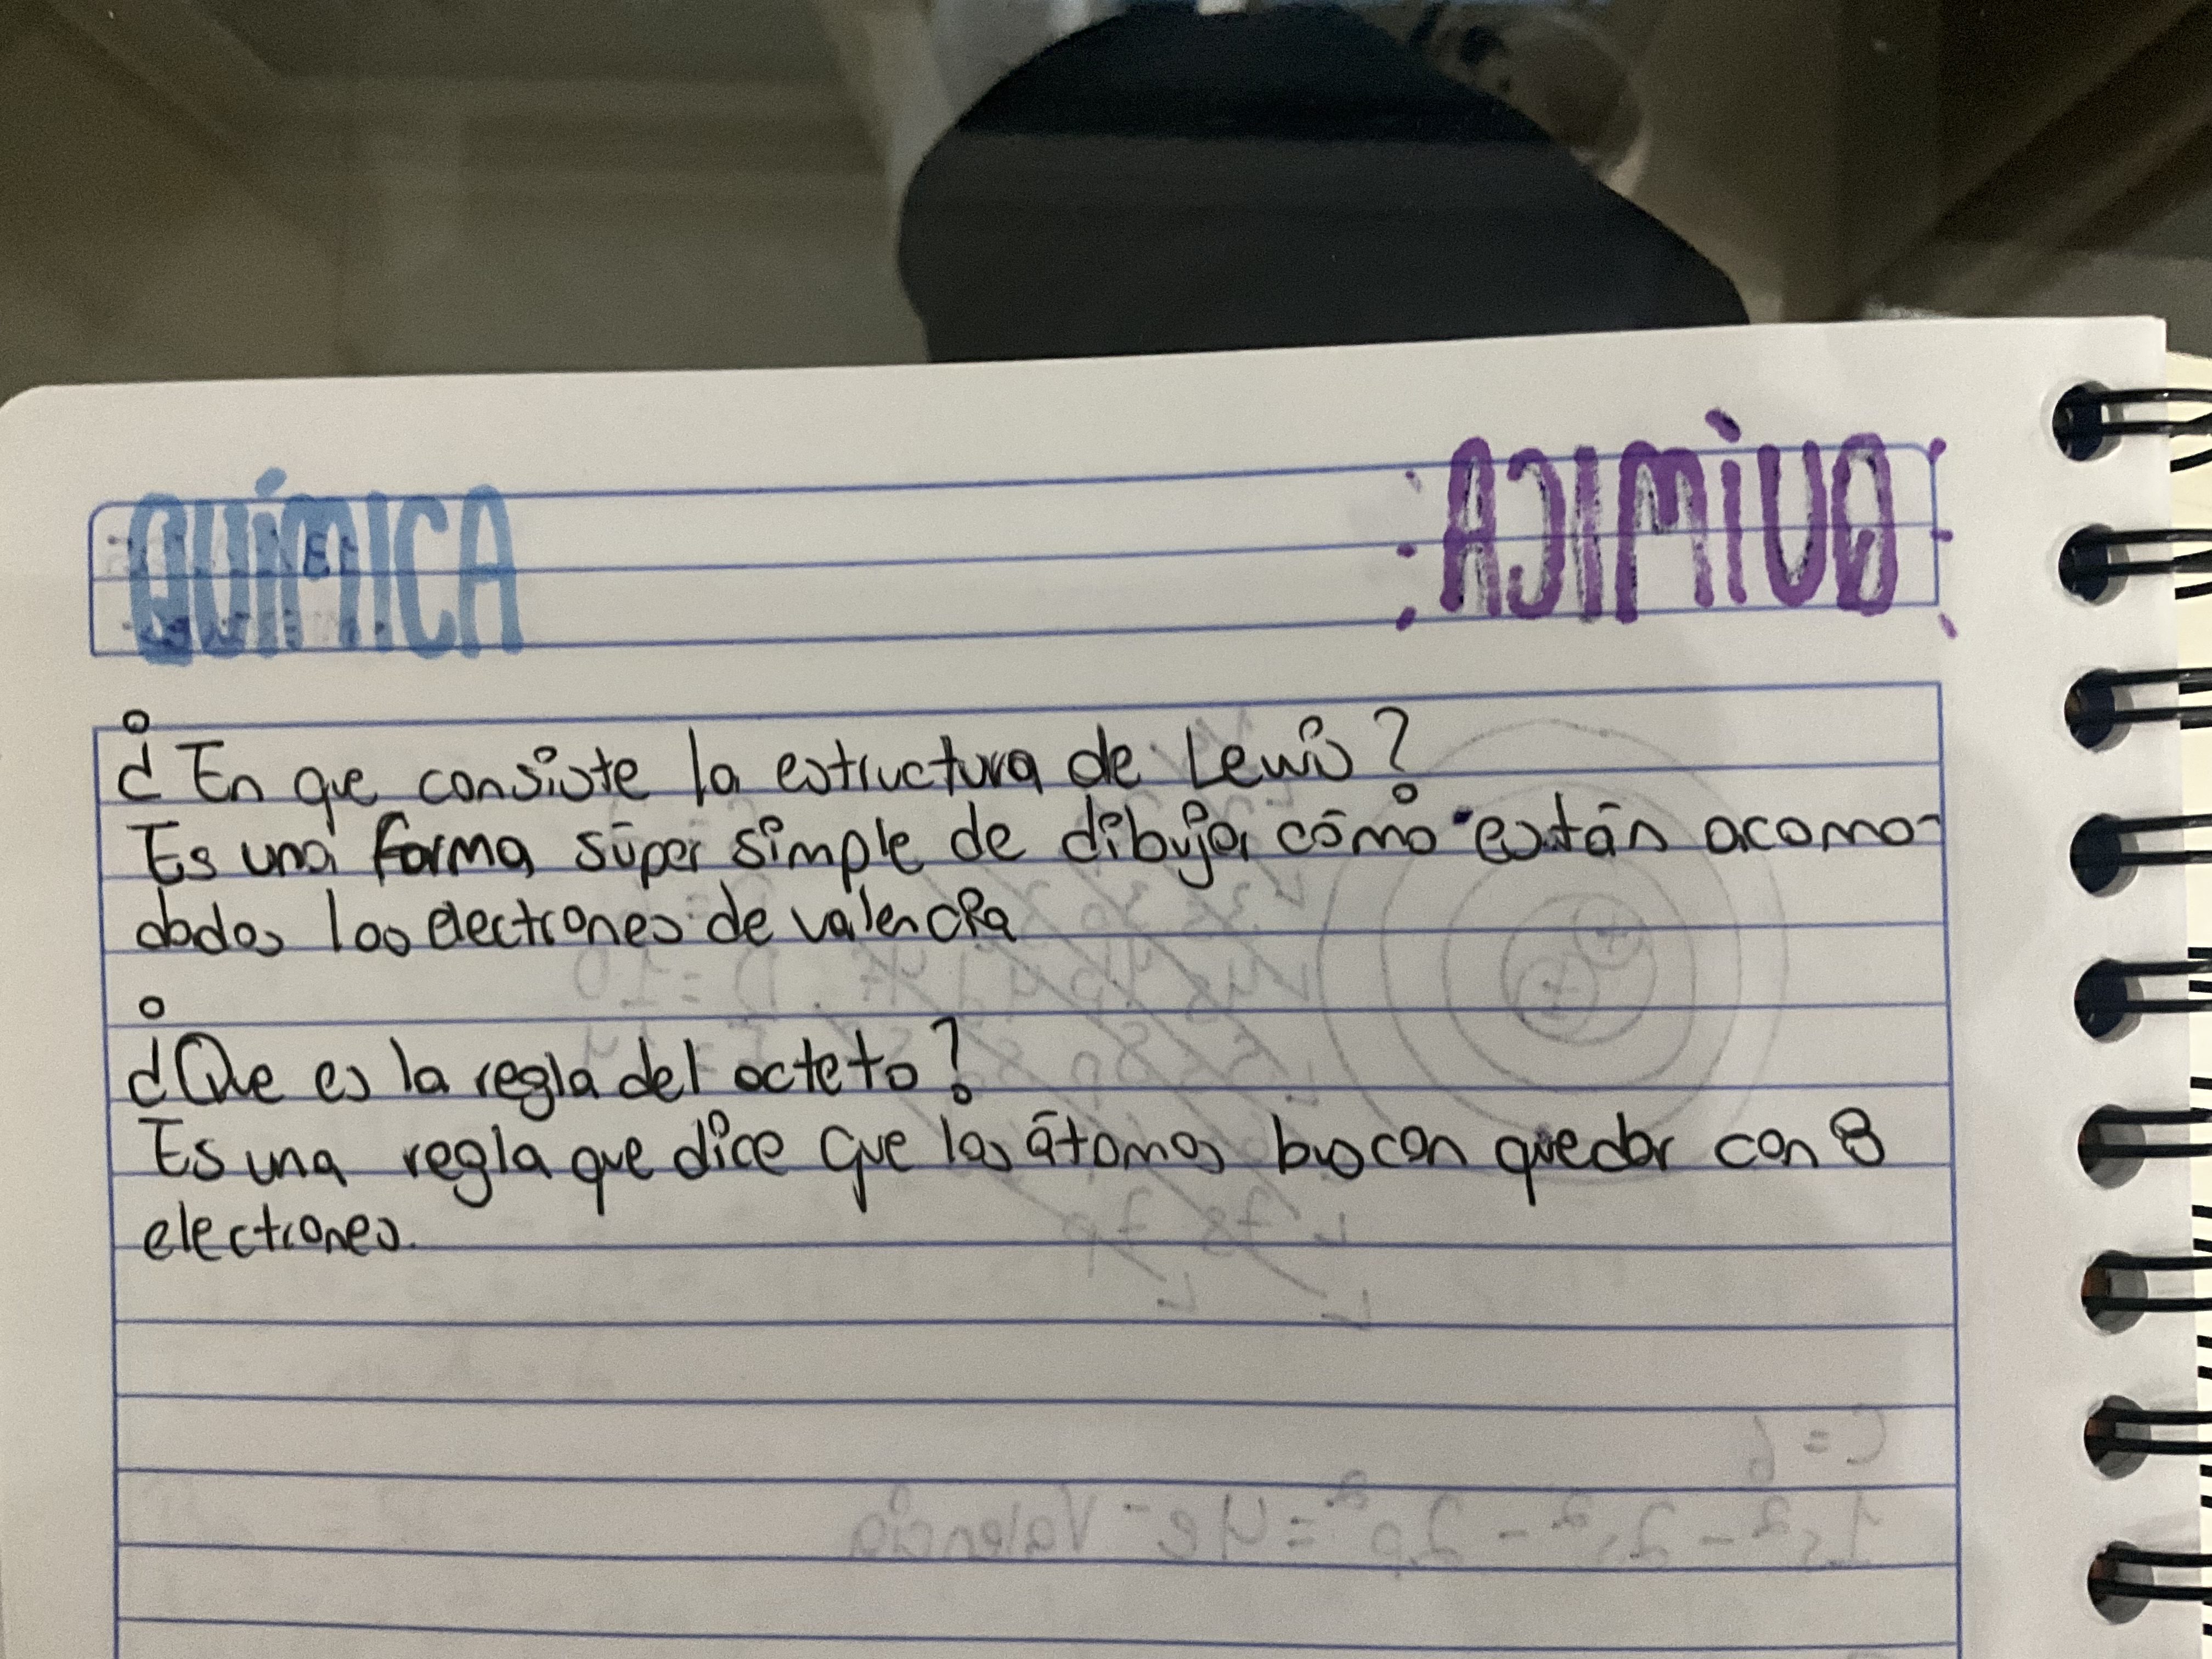 QUÍMICA
QUÍMICA
¿En que consiste la estructura de Lewis?
Es una forma súper simple de dibujar cómo están acomo-
dados los electrones de valencia
¿Que es la regla del octeto?
Es una regla que dice que los átomos buscan quedar con 8
electrones.
C = 6
1s² - 2s² - 2p² = 4e⁻ Valencia